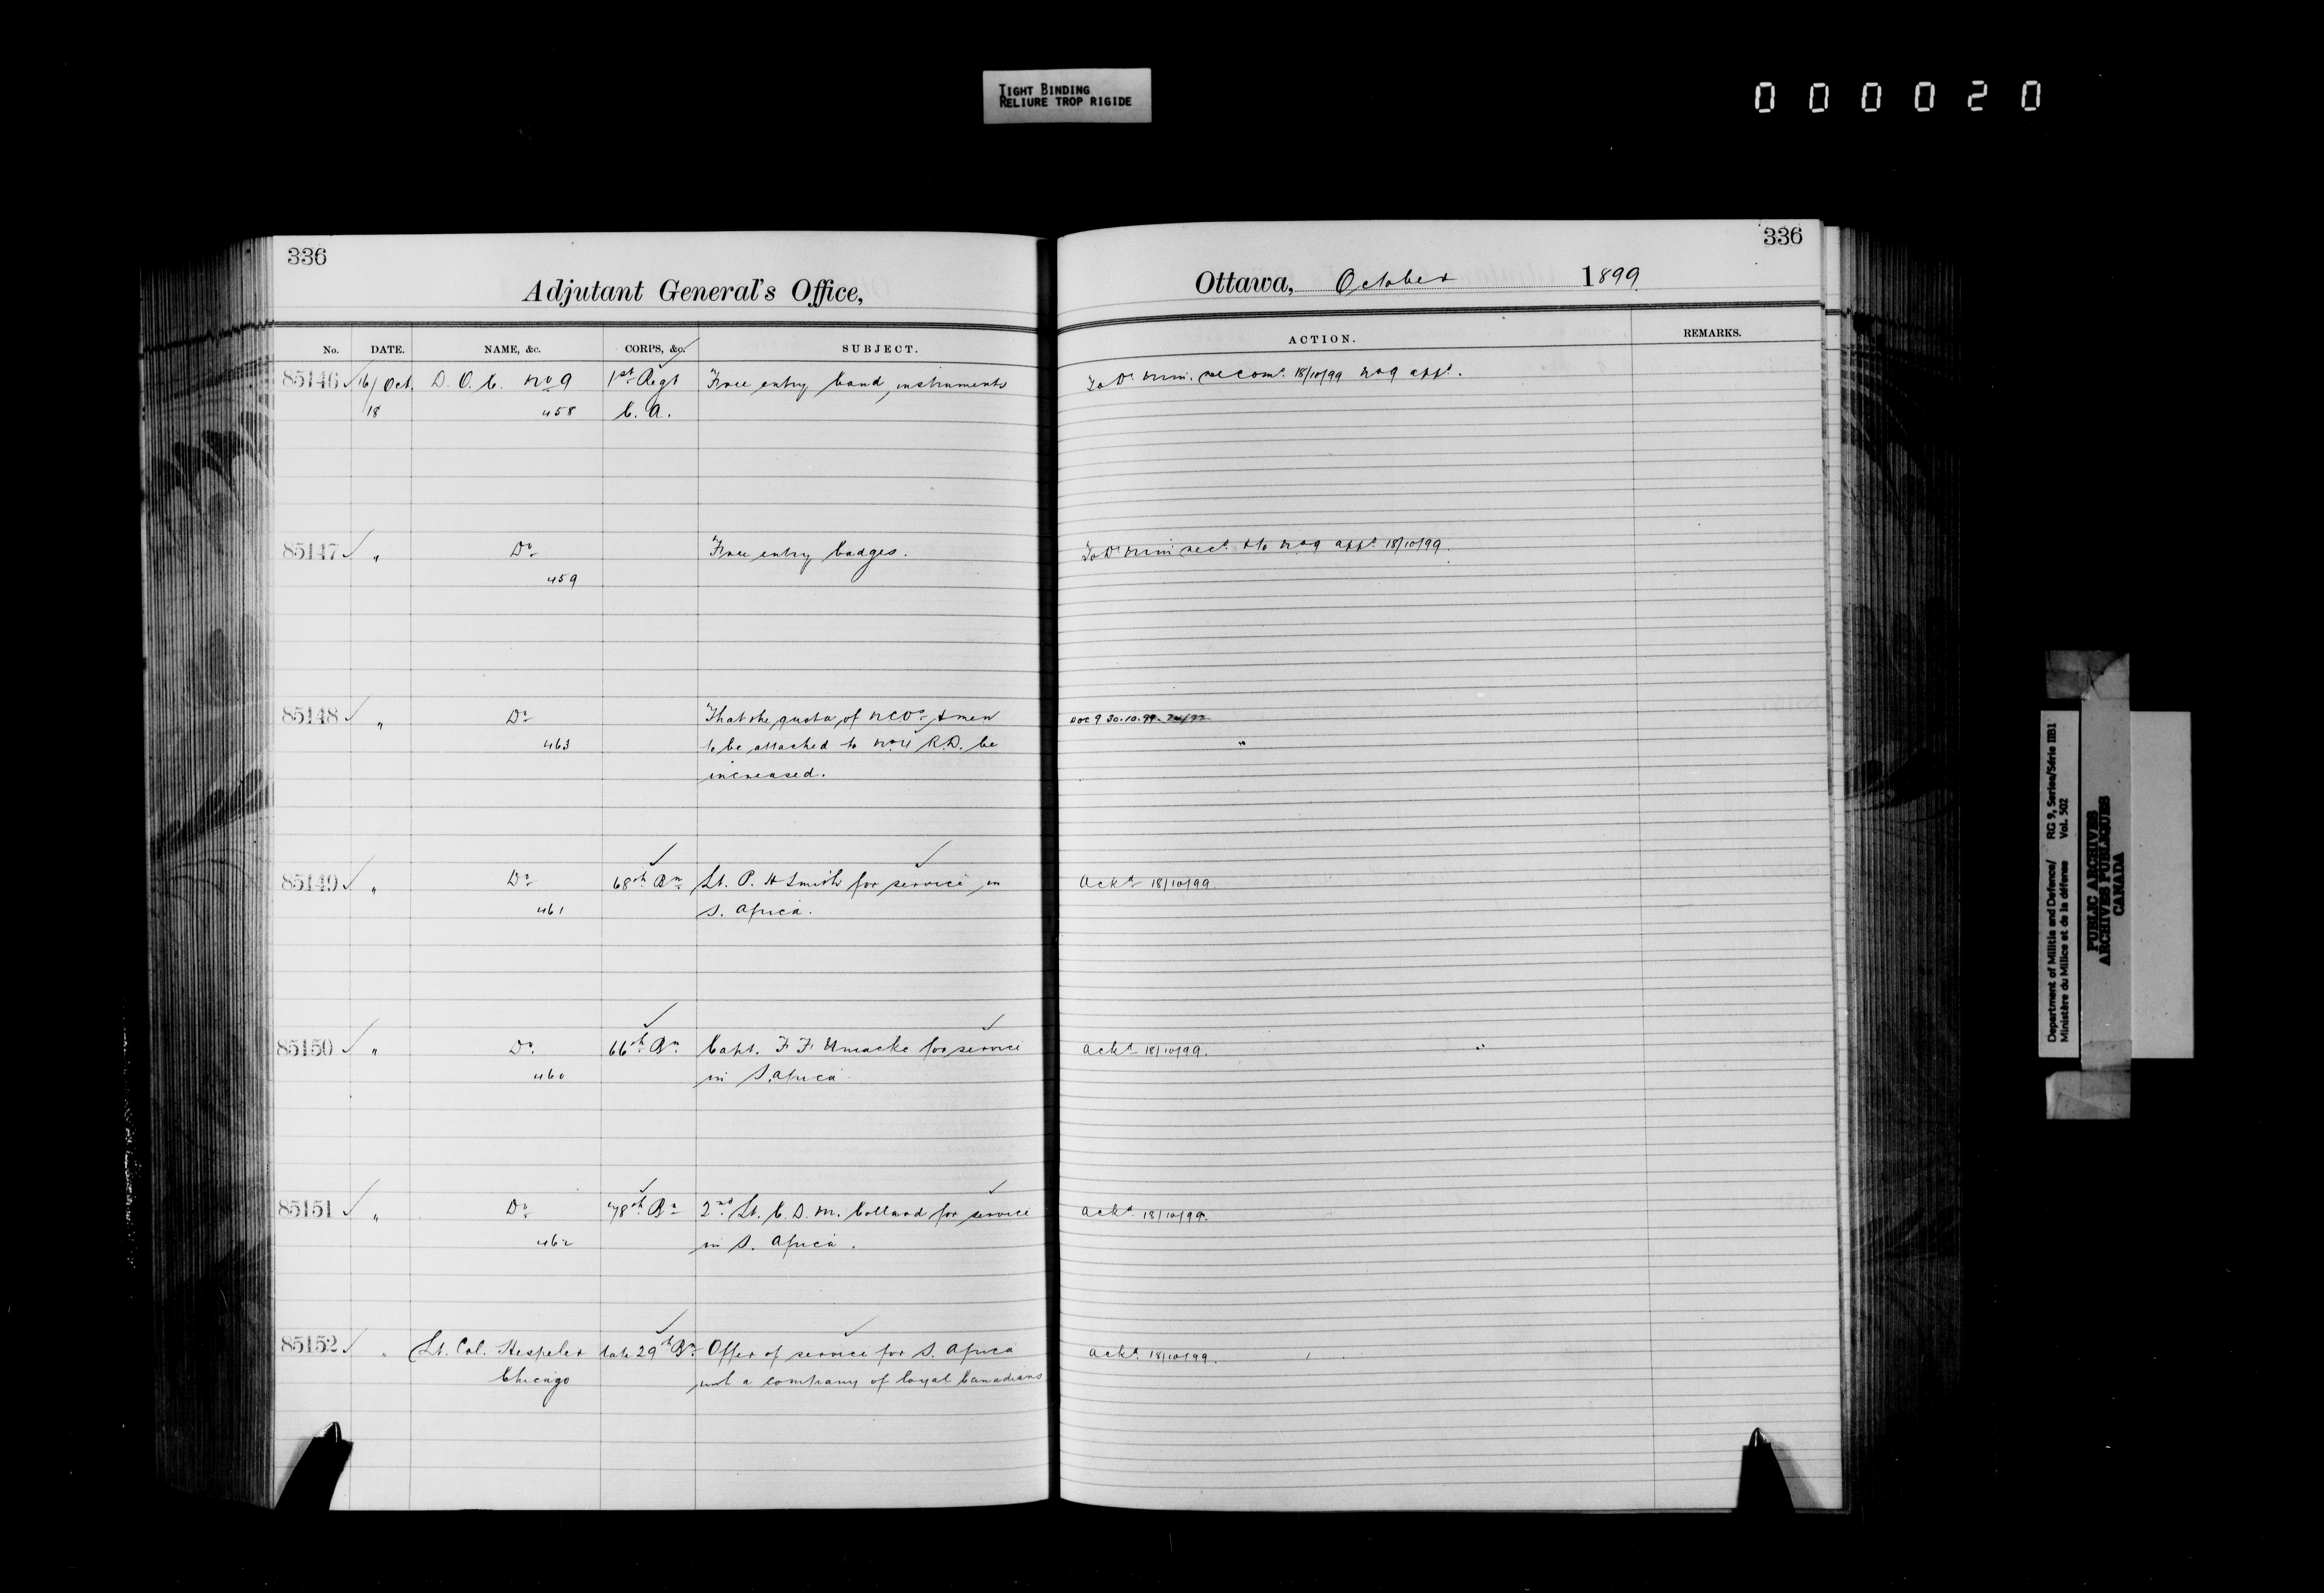 TIGHT BINDING
RELIURE TROP RIGIDE
000020
336
Adjutant General's Office,
No. DATE. NAME, &c. CORPS, &c. SUBJECT.
85146 ✓ 16/ Oct. D. O. C. No 9 1st Regt Free entry band instruments
18 458 C. A.
85147 ✓ " Do Free entry badges.
459
85148 ✓ " Do That the quota of NCOs & men
463 to be attached to No 4 R.D. be
increased.
85149 ✓ " Do 68th Bn Lt. P. H Smith for service in
461 S. Africa.
85150 ✓ " Do 66th Bn Capt. F F Uniacke for service
460 in S. Africa
85151 ✓ " Do 78th Bn 2nd Lt. C. D. M. for service
462 in S. Africa.
85152 ✓ " Lt. Col. Hespeler late 29th Bn Offer of service for S. Africa
Chicago with a company of loyal Canadians
336
Ottawa, October 1899
ACTION. REMARKS.
To D. Min. recomd. 18/10/99 appd.
To D Min recd. appd. 18/10/99.
DOC 9 30.10.99.
"
Ackd 18/10/99.
Ackd 18/10/99.
Ackd 18/10/99.
Ackd. 18/10/99.
Department of Militia and Defence/ RG 9, Series/Série IIB1
Ministère du Milice et de la défense Vol. 502
PUBLIC ARCHIVES
ARCHIVES PUBLIQUES
CANADA